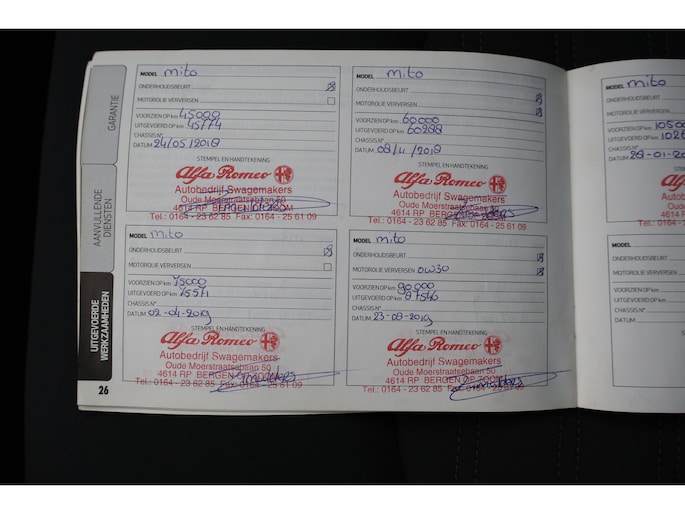 GARANTIE
AANVULLENDE
DIENSTEN
UITGEVOERDE
WERKZAAMHEDEN
26
MODEL mito
ONDERHOUDSBEURT
MOTOROLIE VERVERSEN
VOORZIEN OP km 45000
UITGEVOERD OP km 45174
CHASSIS N°
DATUM 24/05/2018
STEMPEL EN HANDTEKENING
Alfa Romeo
Autobedrijf Swagemakers
Oude Moerstraatsebaan 50
4614 RP BERGEN OP ZOOM
Tel.: 0164 - 23 62 85 Fax: 0164 - 25 61 09
MODEL mito
ONDERHOUDSBEURT
MOTOROLIE VERVERSEN
VOORZIEN OP km 60000
UITGEVOERD OP km 60288
CHASSIS N°
DATUM 08/11/2018
STEMPEL EN HANDTEKENING
Alfa Romeo
Autobedrijf Swagemakers
Oude Moerstraatsebaan 50
4614 RP BERGEN OP ZOOM
Tel.: 0164 - 23 62 85 Fax: 0164 - 25 61 09
MODEL mito
ONDERHOUDSBEURT
MOTOROLIE VERVERSEN
VOORZIEN OP km 75000
UITGEVOERD OP km 75571
CHASSIS N°
DATUM 02-04-2019
STEMPEL EN HANDTEKENING
Alfa Romeo
Autobedrijf Swagemakers
Oude Moerstraatsebaan 50
4614 RP BERGEN OP ZOOM
Tel.: 0164 - 23 62 85 Fax: 0164 - 25 61 09
MODEL mito
ONDERHOUDSBEURT
MOTOROLIE VERVERSEN 0W30
VOORZIEN OP km 90000
UITGEVOERD OP km 87546
CHASSIS N°
DATUM 23-08-2019
STEMPEL EN HANDTEKENING
Alfa Romeo
Autobedrijf Swagemakers
Oude Moerstraatsebaan 50
4614 RP BERGEN OP ZOOM
Tel.: 0164 - 23 62 85 Fax: 0164 - 25 61 09
MODEL mito
ONDERHOUDSBEURT
MOTOROLIE VERVERSEN
VOORZIEN OP km
UITGEVOERD OP km
CHASSIS N°
DATUM
Tel.: 0164
MODEL
ONDERHOUDSBEURT
MOTOROLIE VERVERSEN
VOORZIEN OP km
UITGEVOERD OP km
CHASSIS N°
DATUM